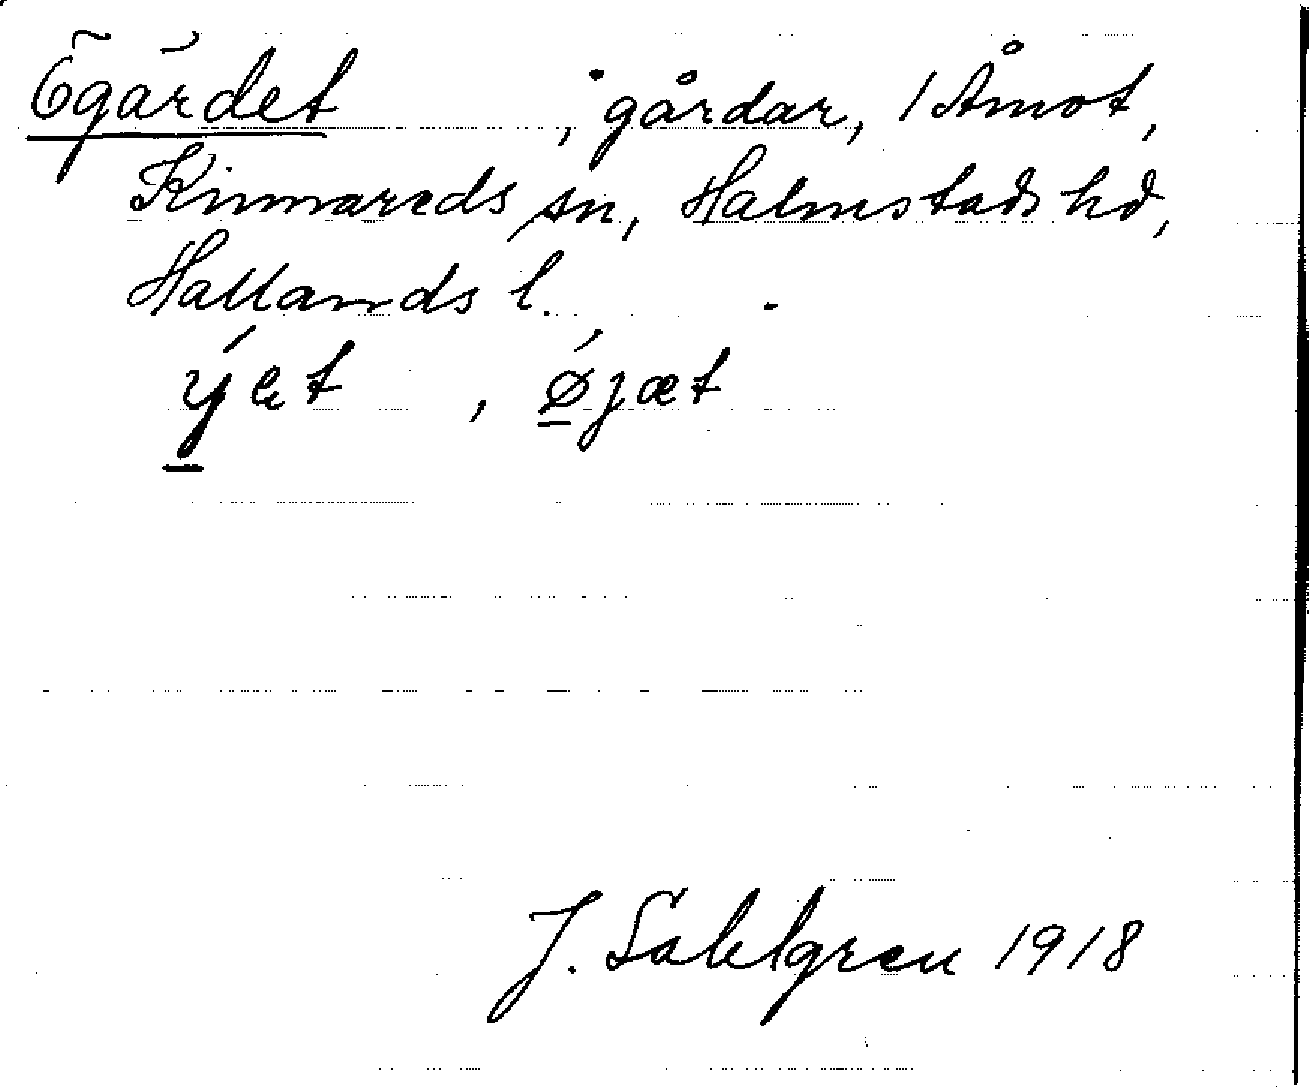 Ögärdet , gårdar, / Åmot,
Kinnareds sn, Halmstads hd,
Hallands l.
ýet , ǿjæt
J. Sahlgren 1918